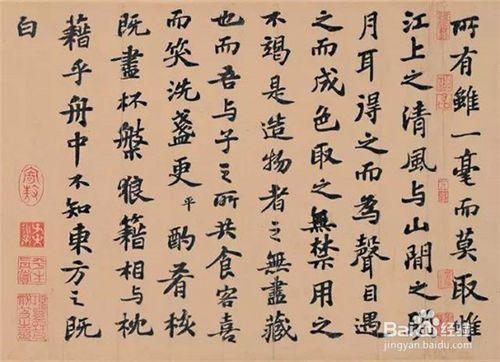 所有雖一毫而莫取惟
江上之清風与山間之明
月耳得之而為聲目遇
之而成色取之無禁用之
不竭是造物者之無盡藏
也而吾与子之所共食客喜
而笑洗盞更平酌肴核
既盡杯槃狼籍相与枕
藉乎舟中不知東方之既
白
Baidu经验
jingyan.baidu.com